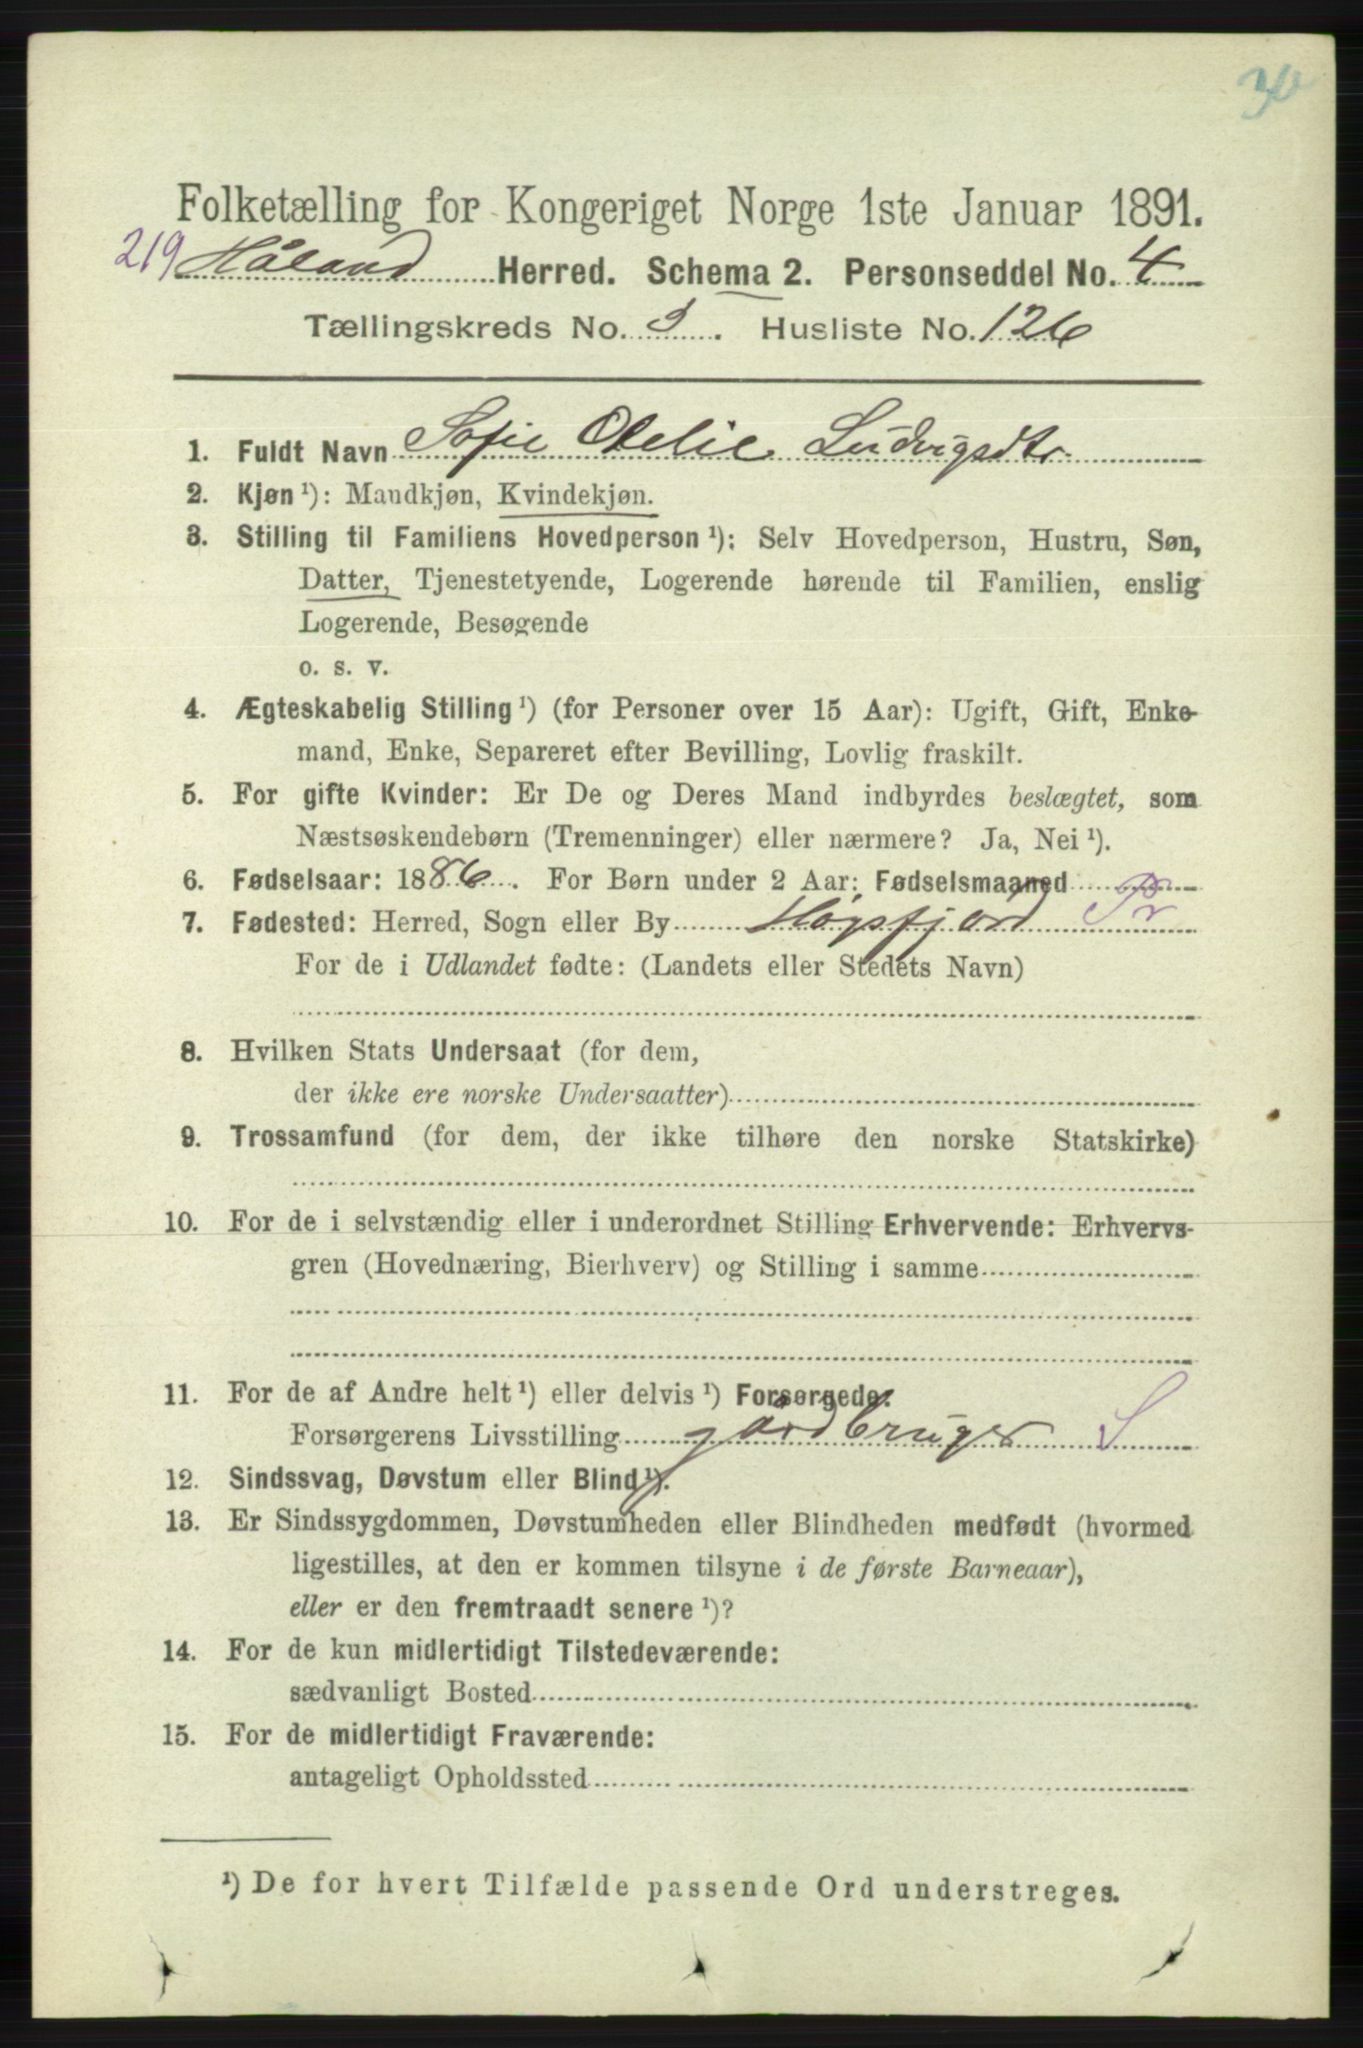 30
Folketælling for Kongeriget Norge 1ste Januar 1891.
219 Håland Herred. Schema 2. Personseddel No. 4
Tællingskreds No. 3. Husliste No. 126
1. Fuldt Navn Sofie Otelie Ludvigsdtr.
2. Kjøn ¹): Mandkjøn, Kvindekjøn.
3. Stilling til Familiens Hovedperson ¹): Selv Hovedperson, Hustru, Søn,
Datter, Tjenestetyende, Logerende hørende til Familien, enslig
Logerende, Besøgende
o. s. v.
4. Ægteskabelig Stilling ¹) (for Personer over 15 Aar): Ugift, Gift, Enke-
mand, Enke, Separeret efter Bevilling, Lovlig fraskilt.
5. For gifte Kvinder: Er De og Deres Mand indbyrdes beslægtet, som
Næstsøskendebørn (Tremenninger) eller nærmere? Ja, Nei ¹).
6. Fødselsaar: 1886. For Børn under 2 Aar: Fødselsmaaned
7. Fødested: Herred, Sogn eller By Høgsfjord Pr
For de i Udlandet fødte: (Landets eller Stedets Navn)
8. Hvilken Stats Undersaat (for dem,
der ikke ere norske Undersaatter)
9. Trossamfund (for dem, der ikke tilhøre den norske Statskirke)
10. For de i selvstændig eller i underordnet Stilling Erhvervende: Erhvervs-
gren (Hovednæring, Bierhverv) og Stilling i samme
11. For de af Andre helt ¹) eller delvis ¹) Forsørgede.
Forsørgerens Livsstilling gårdbruger S
12. Sindssvag, Døvstum eller Blind ¹).
13. Er Sindssygdommen, Døvstumheden eller Blindheden medfødt (hvormed
ligestilles, at den er kommen tilsyne i de første Barneaar),
eller er den fremtraadt senere ¹)?
14. For de kun midlertidigt Tilstedeværende:
sædvanligt Bosted
15. For de midlertidigt Fraværende:
antageligt Opholdssted
¹) De for hvert Tilfælde passende Ord understreges.